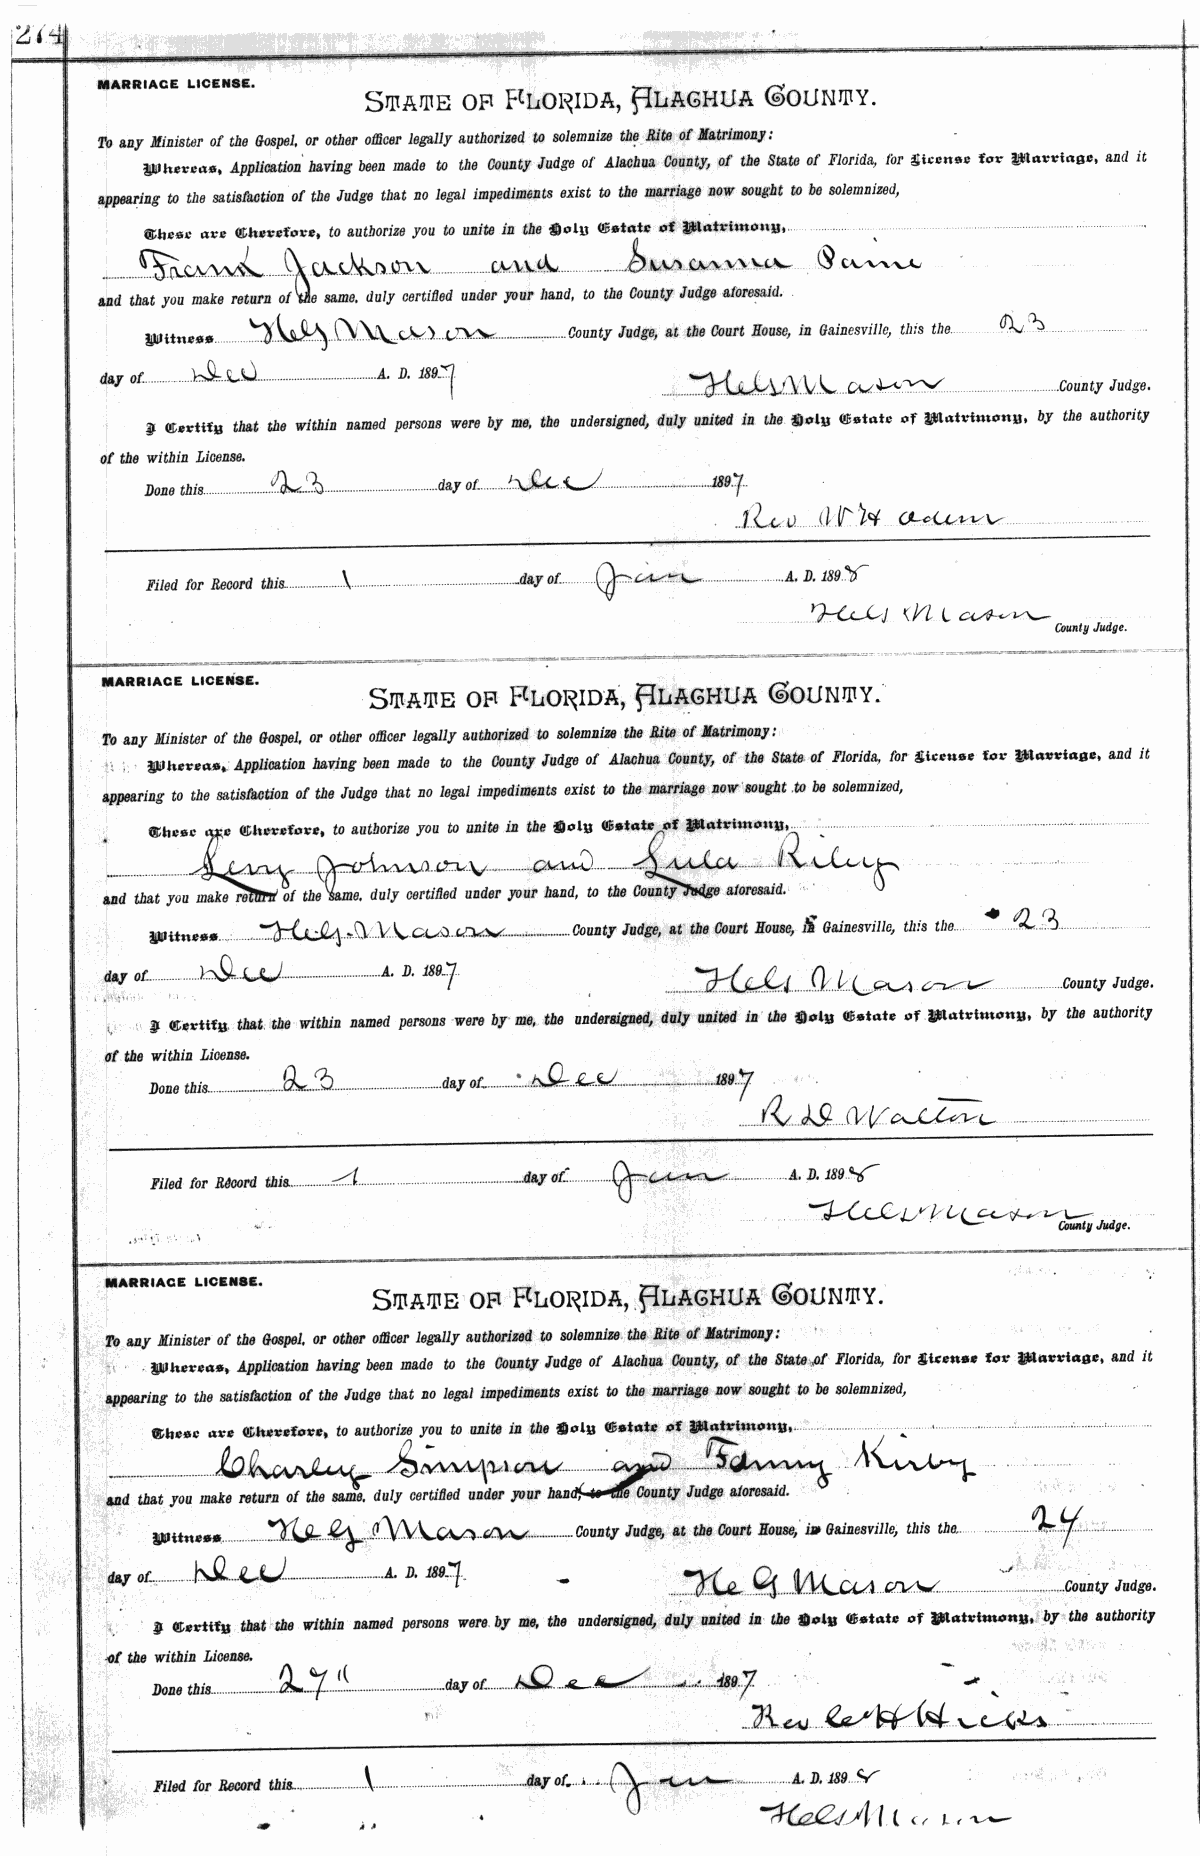 274
MARRIAGE LICENSE.
STATE OF FLORIDA, ALACHUA COUNTY.
To any Minister of the Gospel, or other officer legally authorized to solemnize the Rite of Matrimony:
Whereas, Application having been made to the County Judge of Alachua County, of the State of Florida, for License for Marriage, and it
appearing to the satisfaction of the Judge that no legal impediments exist to the marriage now sought to be solemnized,
These are Therefore, to authorize you to unite in the Holy Estate of Matrimony,
Frank Jackson and Susanna Paine
and that you make return of the same, duly certified under your hand, to the County Judge aforesaid.
Witness H G Mason County Judge, at the Court House, in Gainesville, this the 23
day of Dec A. D. 1897
H G Mason County Judge.
I Certify that the within named persons were by me, the undersigned, duly united in the Holy Estate of Matrimony, by the authority
of the within License.
Done this 23 day of Dec 1897
Rev W H Odem
Filed for Record this 1 day of Jan A. D. 1898
Mason
County Judge.
MARRIAGE LICENSE.
STATE OF FLORIDA, ALACHUA COUNTY.
To any Minister of the Gospel, or other officer legally authorized to solemnize the Rite of Matrimony:
Whereas, Application having been made to the County Judge of Alachua County, of the State of Florida, for License for Marriage, and it
appearing to the satisfaction of the Judge that no legal impediments exist to the marriage now sought to be solemnized,
These are Therefore, to authorize you to unite in the Holy Estate of Matrimony,
Levy Johnson and Lula Riley
and that you make return of the same, duly certified under your hand, to the County Judge aforesaid.
Witness H. G. Mason County Judge, at the Court House, in Gainesville, this the 23
day of Dec A. D. 1897
Mason County Judge.
I Certify that the within named persons were by me, the undersigned, duly united in the Holy Estate of Matrimony, by the authority
of the within License.
Done this 23 day of Dec 1897
R D Walton
Filed for Record this 1 day of Jan A. D. 1898
Mason
County Judge.
MARRIAGE LICENSE.
STATE OF FLORIDA, ALACHUA COUNTY.
To any Minister of the Gospel, or other officer legally authorized to solemnize the Rite of Matrimony:
Whereas, Application having been made to the County Judge of Alachua County, of the State of Florida, for License for Marriage, and it
appearing to the satisfaction of the Judge that no legal impediments exist to the marriage now sought to be solemnized,
These are Therefore, to authorize you to unite in the Holy Estate of Matrimony,
Charley Simpson and Fanny Kirby
and that you make return of the same, duly certified under your hand, to the County Judge aforesaid.
Witness H G Mason County Judge, at the Court House, in Gainesville, this the 24
day of Dec A. D. 1897
H G Mason County Judge.
I Certify that the within named persons were by me, the undersigned, duly united in the Holy Estate of Matrimony, by the authority
of the within License.
Done this 27" day of Dec 1897
Rev C H Hicks
Filed for Record this 1 day of Jan A. D. 1898
Mason